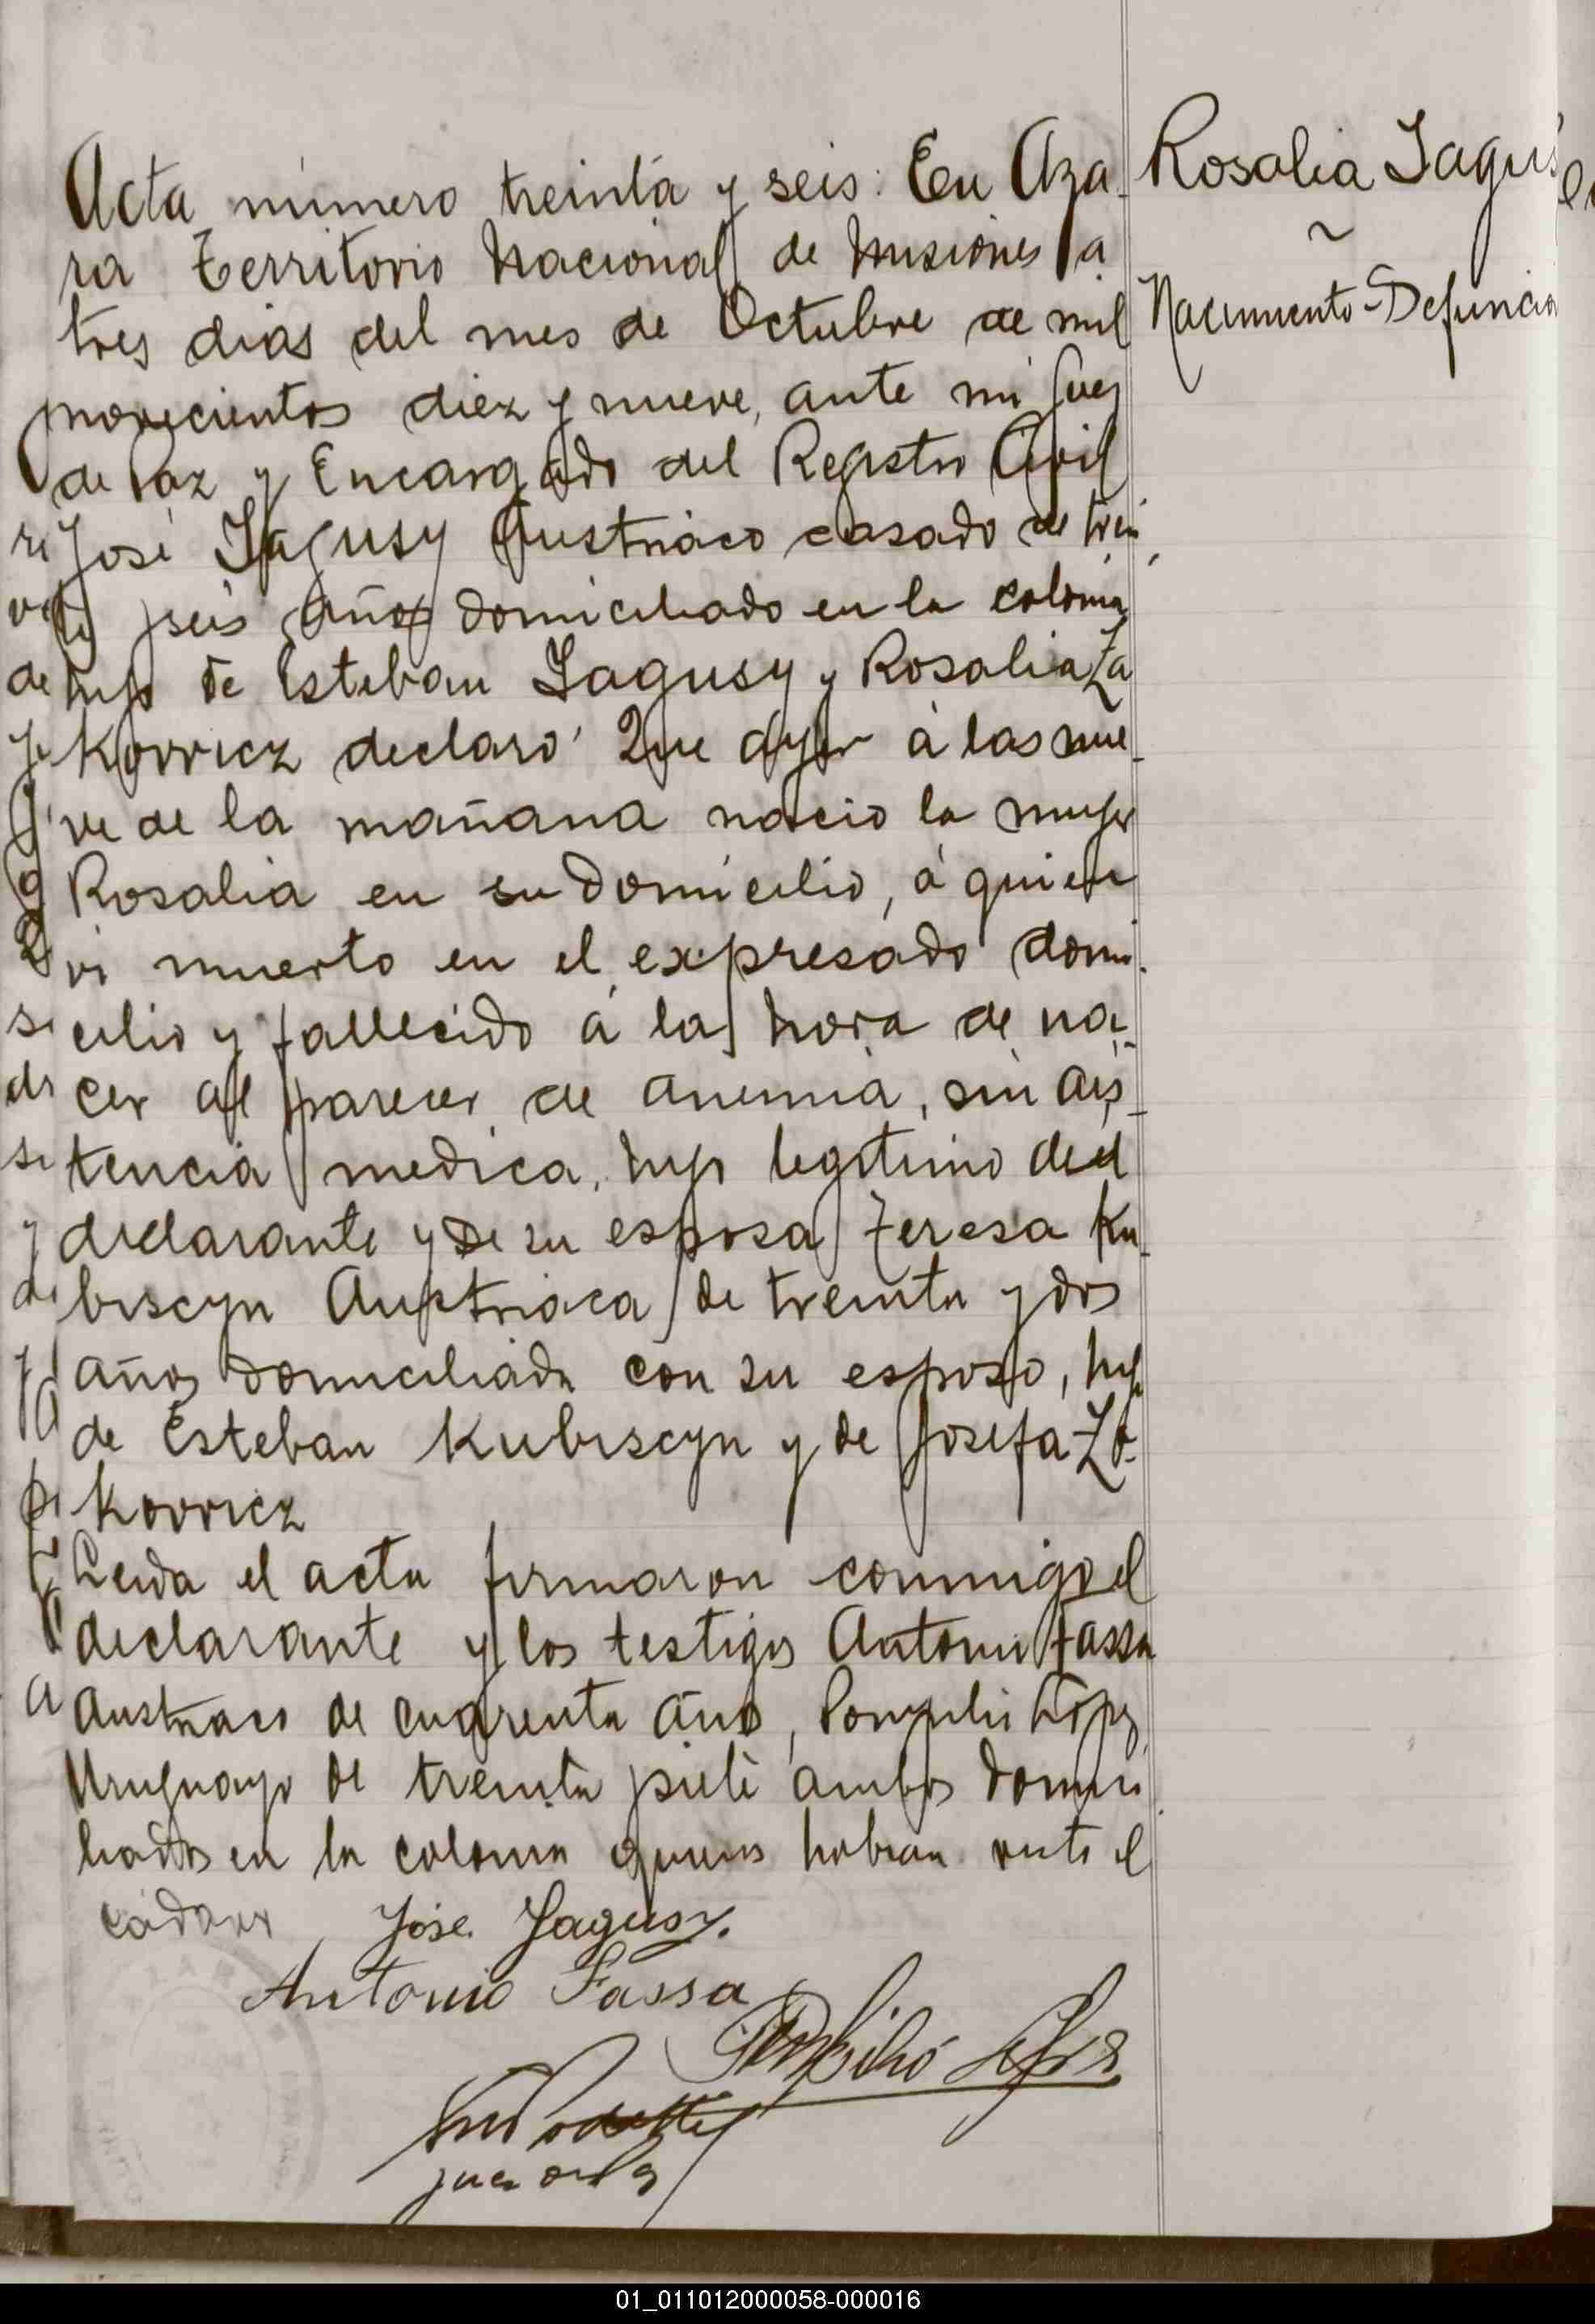 Rosalia Jagus
Nacimiento-Defuncio
Acta número treinta y seis: En Aza-
ra Territorio Nacional de Misiones a
tres dias del mes de Octubre de mil
novecientos diez y nueve, ante mi Juez
de Paz y Encargado del Registro Civil
José Jagusy Austriaco casado de trein
ta y seis años domiciliado en la colonia
hijo de Esteban Jagusy y Rosalia Za
Kovricz declaró Que ayer á las nue-
ve de la mañana nacio la mujer
Rosalia en su domicilio, á quien
vi muerto en el expresado domi-
cilio y fallecido á la hora de na-
cer al parecer de anemia, sin ais-
tencia medica, hijo legitimo del
declarante y de su esposa Teresa Ku-
biscyn Austriaca de treinta y dos
años domiciliada con su esposo, hija
de Esteban Kubiscyn y de Josefa Zo-
Kovricz
Leida el acta firmaron conmigo el
declarante y los testigos Antonio Fassa
Austriaco de cuarenta años, Pompilio López
Uruguayo de treinta siete ambos domici
liados en la colonia quienes habian visto el
cadaver José Jagusy.
Antonio Fassa
Pompilió López
juez de Paz
01_011012000058-000016